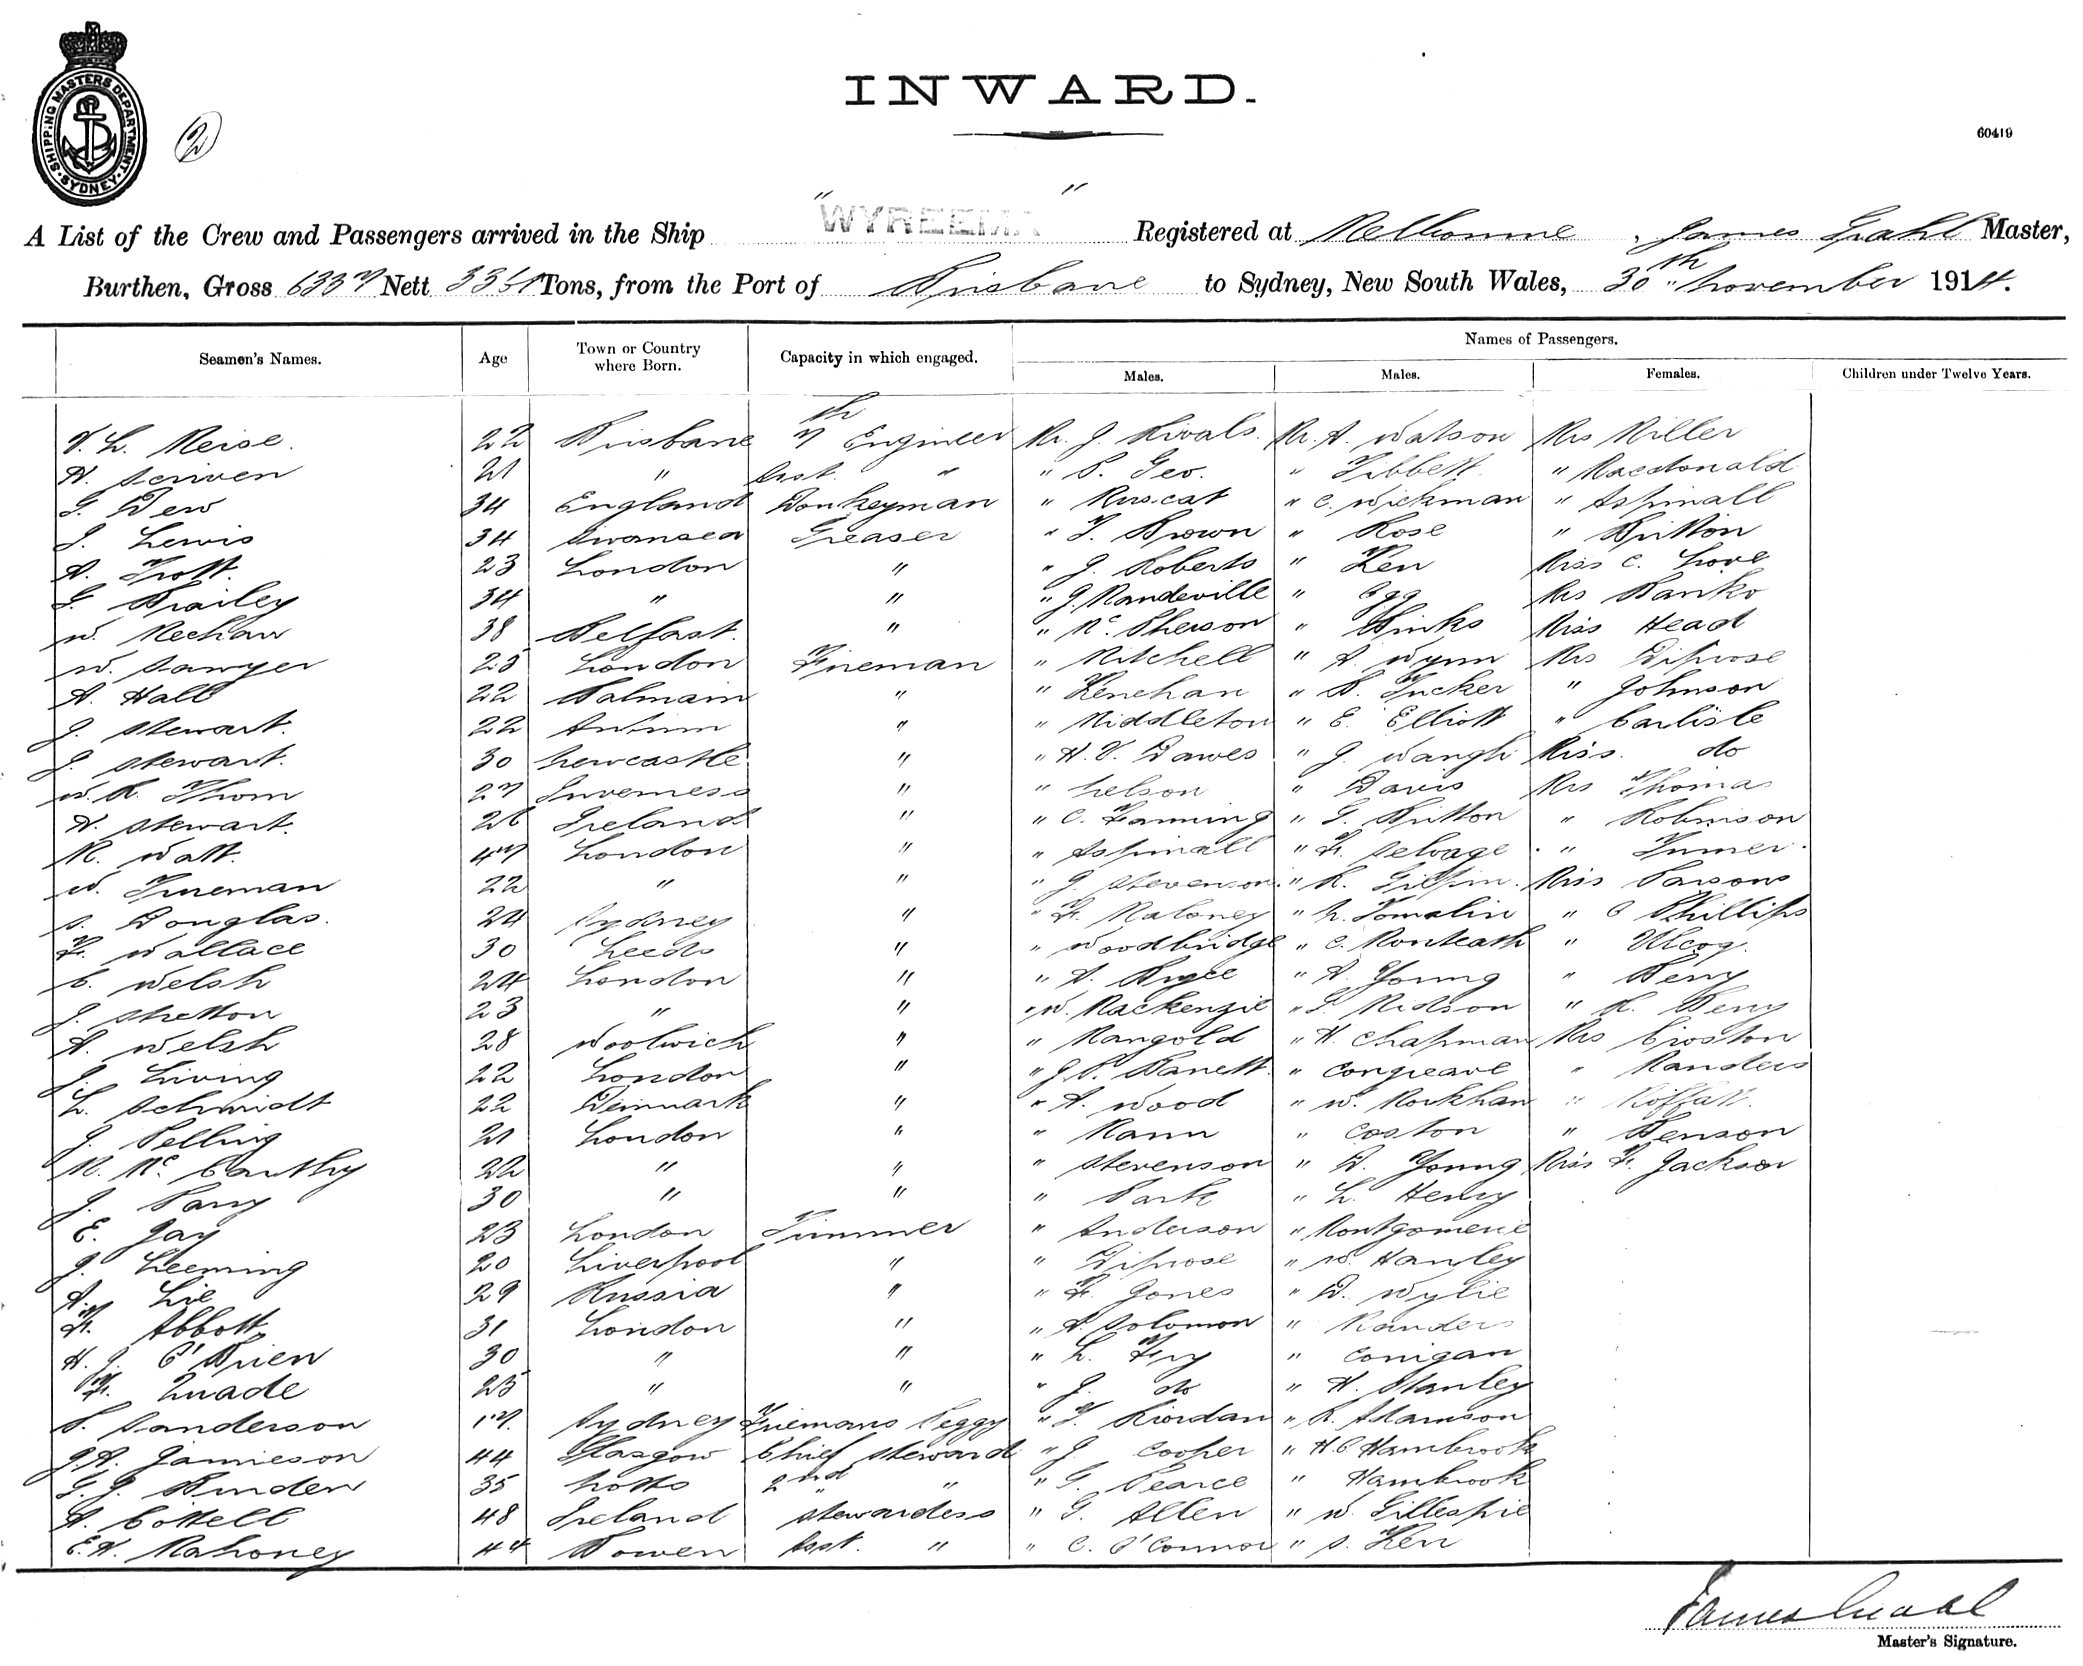 SHIPPING MASTERS DEPARTMENT. SYDNEY.
2
INWARD.
60419
A List of the Crew and Passengers arrived in the Ship "WYREEMA" Registered at Melbourne, James Grahl Master,
Burthen, Gross 6337 Nett 3351 Tons, from the Port of Brisbane to Sydney, New South Wales, 30th November 1914.
Seamen's Names. Age Town or Country where Born. Capacity in which engaged. Names of Passengers.
Males. Males. Females. Children under Twelve Years.
V. L. Meise. 22 Brisbane 7th Engineer Mr. J. Rivals. Mr. A. Watson Mrs Miller
A. Scriven 21 " Asst. " " P. Geo. " Tibbett " Macdonald
G. Dew 34 England Donkeyman " Muscat " C. Wickman " Aspinall
J. Lewis 34 Swansea Greaser " T. Brown " Rose " Britton
A. Trott. 23 London " " J. Roberts " Ken Miss C. Love
G. Brailey 34 " " " J. Mandeville " Egg Mrs Banks
W. Meehan 38 Belfast. " " Mc. Pherson " Binks Miss Head
W. Sawyer 25 London Fireman " Mitchell " A. Wynn Mrs Diprose
A. Hall 22 Balmain " " Kenehan " B. Tucker " Johnson
J. Stewart. 22 Antrim " " Middleton " E. Elliott " Carlisle
J. Stewart. 30 Newcastle " " H. V. Dawes " J. Waugh Miss. do
W. R. Thom 27 Inverness " " Nelson " Davis Mrs Thomas
A. Stewart. 26 Ireland " " C. Fanning " G. Britton " Robinson
R. Watt. 47 London " " Aspinall " F. Selvage " Turner.
W. Trueman 22 " " " J. Stevenson. " R. Gilpin. Miss Parsons
S. Douglas. 24 Sydney " " F. Maloney " N. Tomalin " O Phillips
F. Wallace 30 Leeds " " Woodbridge " C. Monteath "
C. Welsh 24 London " " A. Bryce " A Young " Berry
J. Shetton 23 " " " W. Mackenzie " S. Midson " K. Berry
A. Welsh 28 Woolwich " " Mangold " H. Chapman Mrs Croston
J. Living 22 London " " J. P. Barrett. " Congreave " Randers
L. Schmidt 22 Denmark " " A. Wood " W. Markham " Moffatt.
J. Pelling 21 London " " Mann " Coston " Benson
M. Mc. Carthy 32 " " " Stevenson " D. Young Miss F. Jackson
J. Parry 30 " " " Park " L. Henry
E. Jay 23 London Trimmer " Anderson " Montgomerie
J. Leeming 20 Liverpool " " Diprose " W. Hanley
A. Lie 29 Russia " " F. Jones " D. Wylie
F. Abbott 31 London " " A Solomon " Randers
H. J. O'Brien 30 " " " L. Fry " Corrigan
F. Quade 25 " " " J. do " H. Stanley
P. Sanderson 17. Sydney Firemans Peggy " T. Riordan " R. Adamson
J. A. Jamieson 44 Glasgow Chief Steward " J. Cooper " H. C Hambrook
G J. Binden 35 Notts 2nd " " G. Pearce " Hambrook
A. Cottell 48 Ireland Stewardess " G. Allen " W. Gillespie
E. A. Mahoney 44 Bowen Asst. " " C. O'Connor " S. Kerr
James Grahl
Master's Signature.